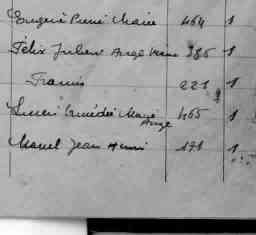 Eugène René Marie 464 1
Félix Julien Ange 386 1
Francis 221 1
Amédée Marie Ange 465 1
Marcel Jean Henri 171 1